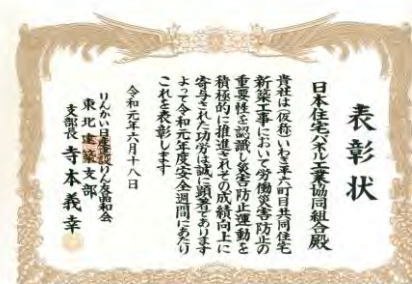 表彰状
日本住宅パネル工業協同組合殿
貴社は(仮称)いわき平六町目共同住宅
新築工事において労働災害防止の
重要性を認識し災害防止運動を
積極的に推進されその成績向上に
寄与された功労は誠に顕著であります
よって令和元年度安全週間にあたり
これを表彰します
令和元年六月十八日
りんかい日産建設りんな品和会
東北建築支部
支部長 寺本義幸